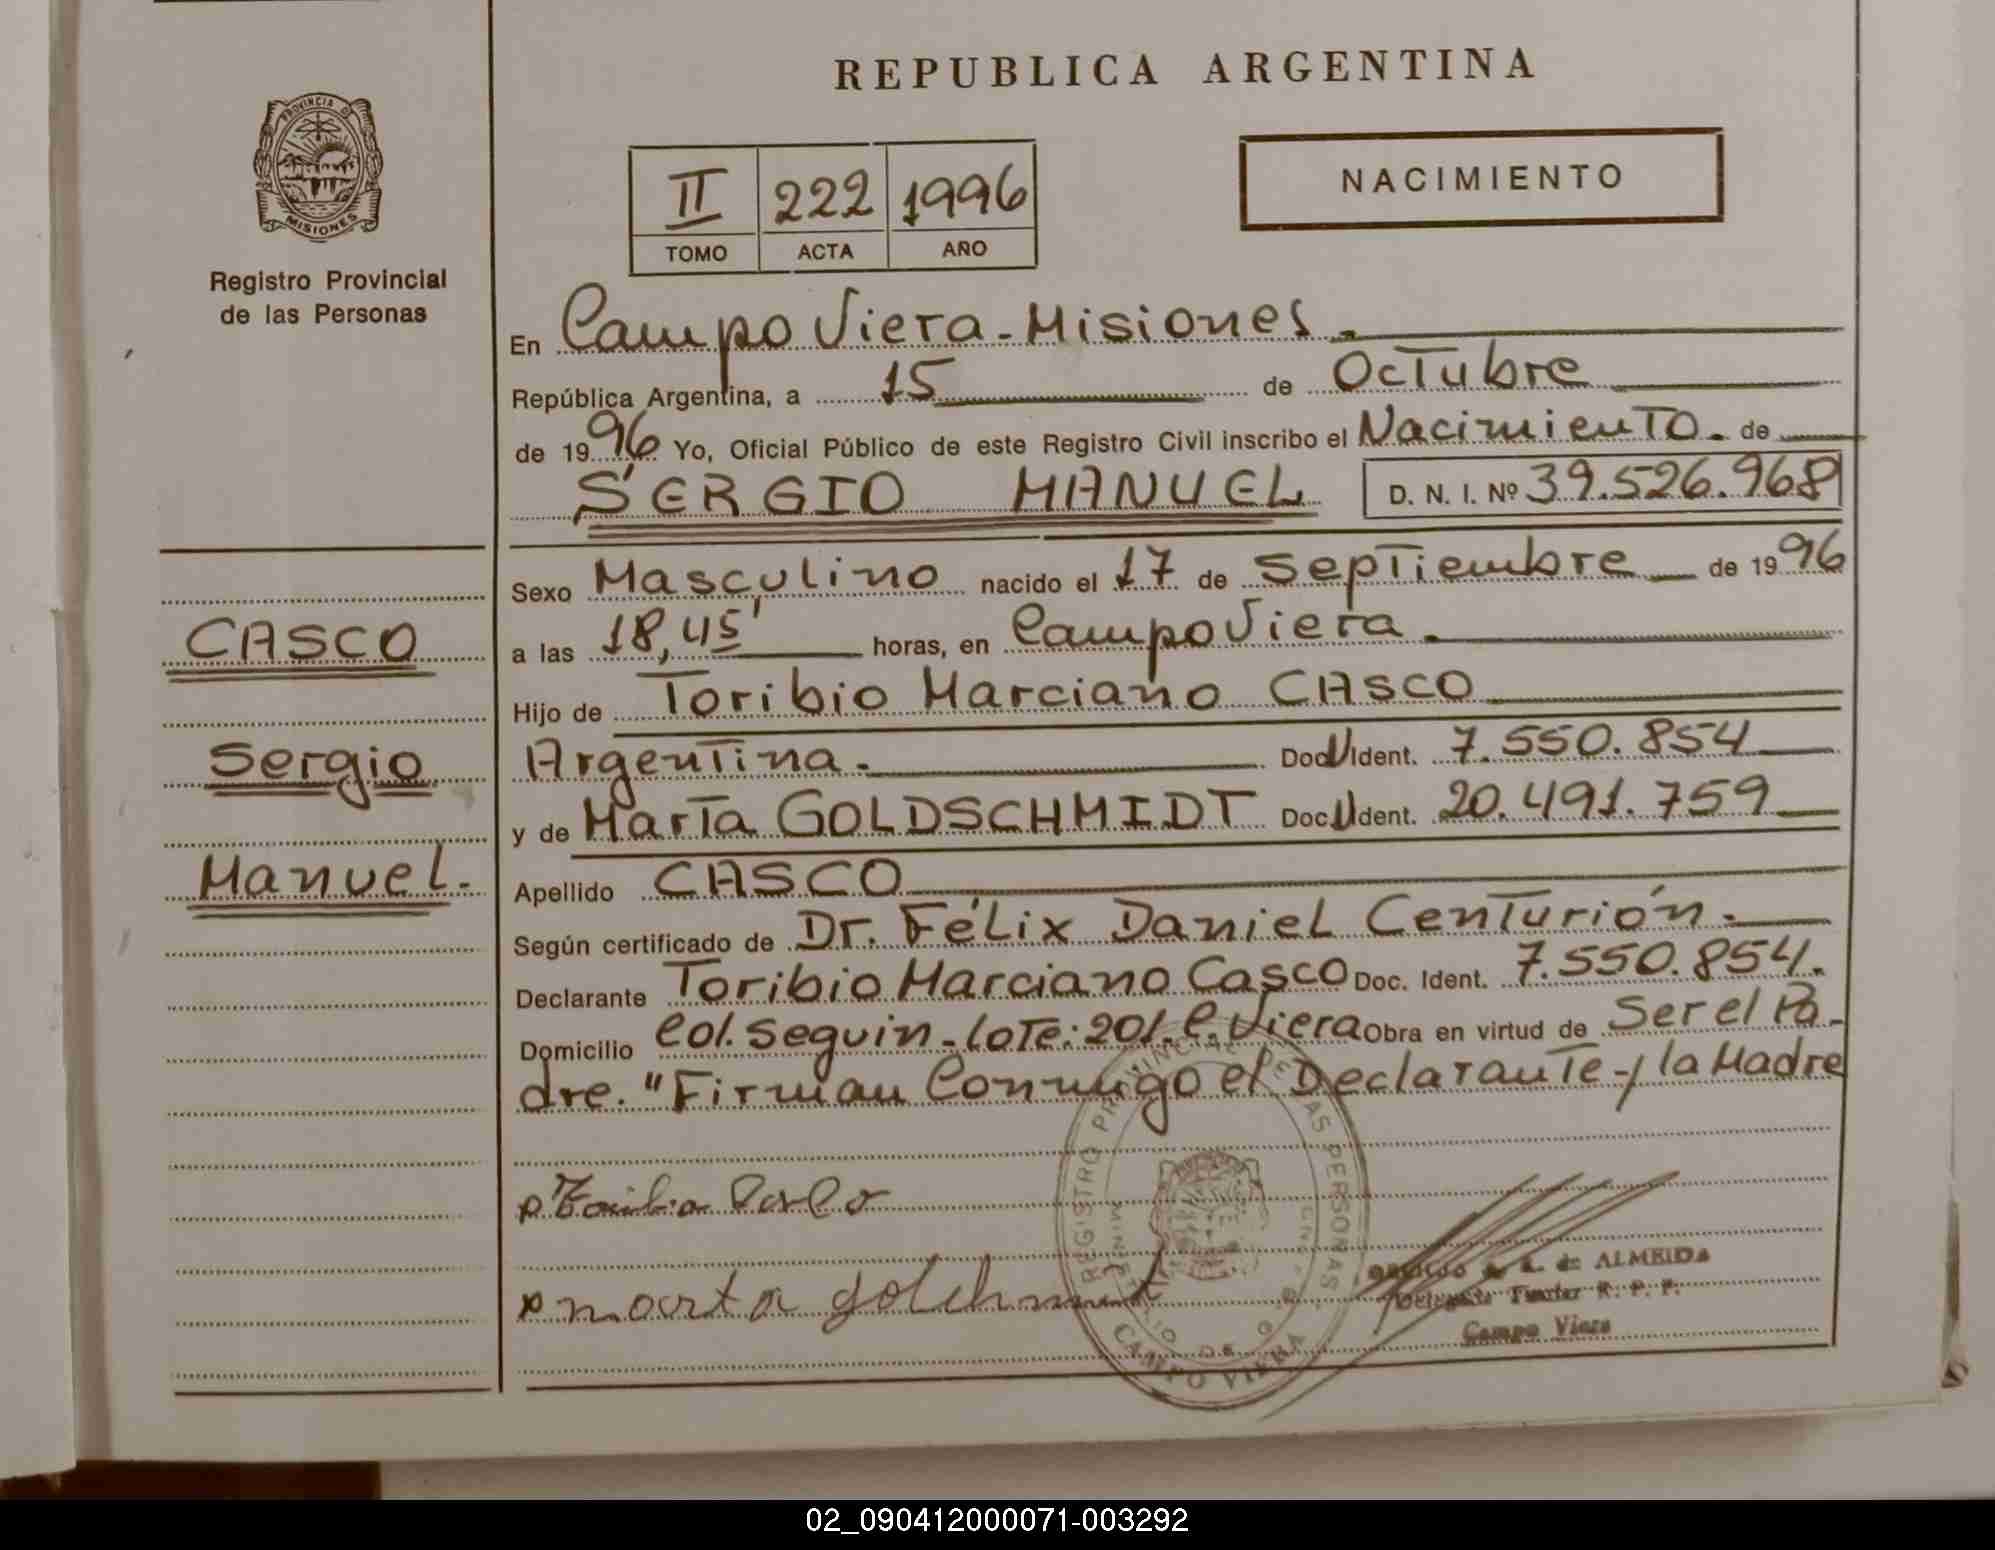 REPUBLICA ARGENTINA
PROVINCIA D
MISIONES
Registro Provincial
de las Personas
II 222 1996
TOMO ACTA AÑO
NACIMIENTO
En Campo Viera - Misiones.
República Argentina, a 15 de Octubre
de 1996 Yo, Oficial Público de este Registro Civil inscribo el Nacimiento. de
SERGIO MANUEL D. N. I. Nº 39.526.968
Sexo Masculino nacido el 17 de Septiembre de 1996
a las 18,45' horas, en Campo Viera.
Hijo de Toribio Marciano CASCO
Argentina. Doc U Ident. 7.550.854
y de Marta GOLDSCHMIDT Doc. U Ident. 20.491.759
Apellido CASCO
Según certificado de Dr. Félix Daniel Centurión.
Declarante Toribio Marciano Casco Doc. Ident. 7.550.854.
Domicilio Col. Seguin - Lote: 201. C. Viera Obra en virtud de Ser el Pa-
dre. "Firman Conmigo el Declarante y la Madre
CASCO
Sergio
Manuel.
marta
REGISTRO PROVINCIAL DE LAS PERSONAS
CAMPO VIERA
de ALMEIDA
Delegada Titular R. P. P.
Campo Viera
02_090412000071-003292